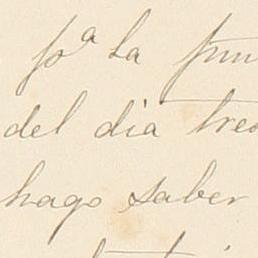 pª la fun
del dia tres
hago saber